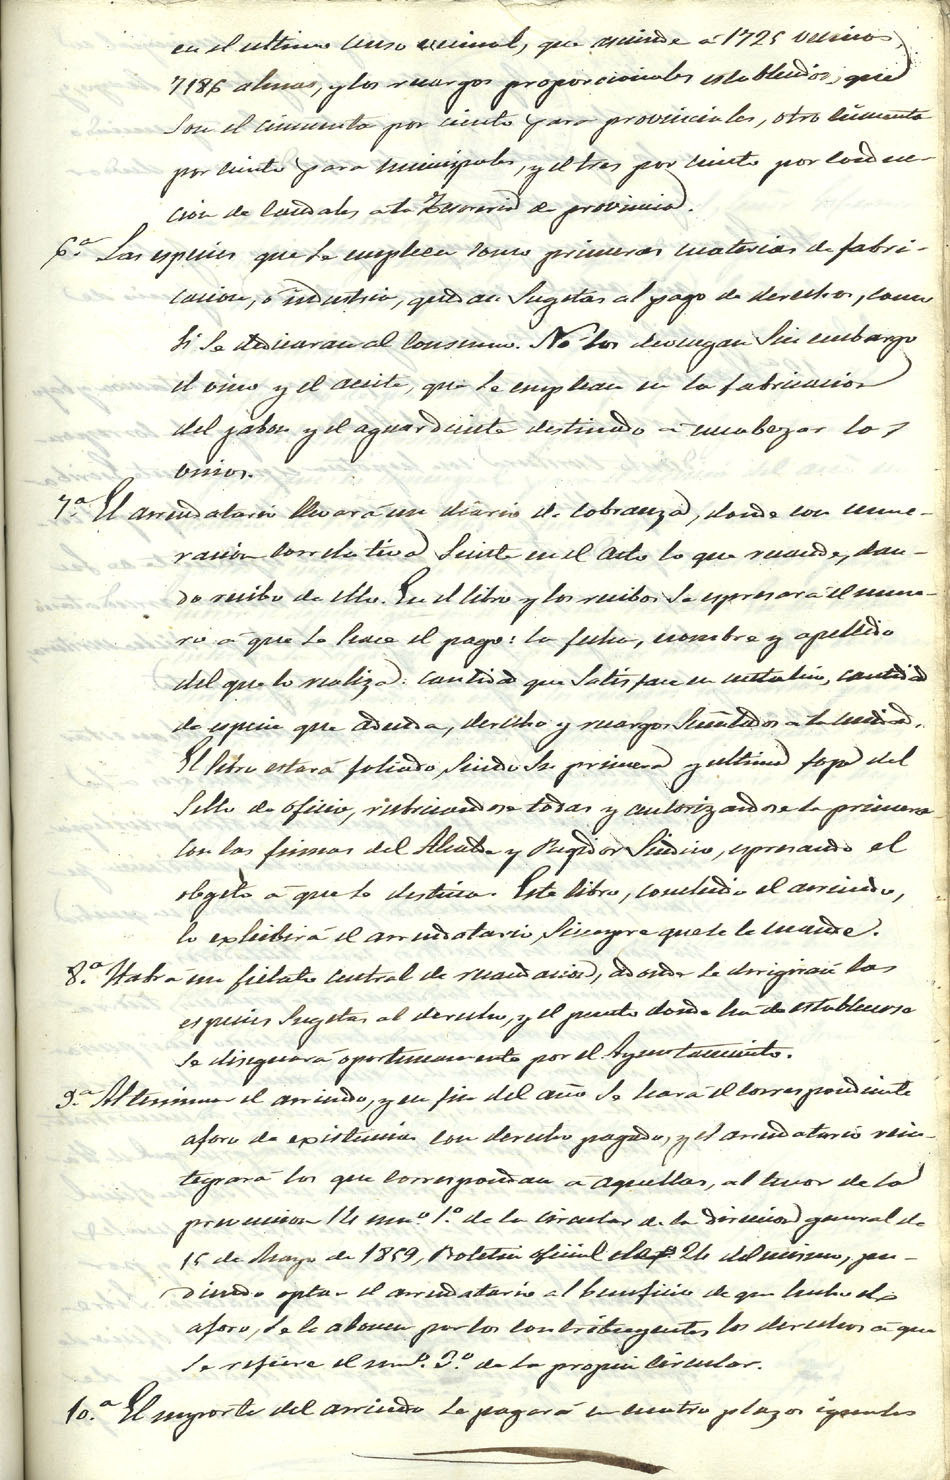 en el ultimo censo vecinal, que asciende á 1725 vecinos,
7186 almas, y los recargos proporcionales establecidos, que
son el cincuenta por ciento para provinciales, otro cincuenta
por ciento para municipales, y el tres por ciento por conduc-
cion de caudales a la Tesoreria de provincia.
6.ª Las especies que se empleen como primeras materias de fabri-
cacion, o industria, quedan sugetas al pago de derechos, como
si se dedicaran al consumo. No los devengan sin embargo
el vino y el aceite, que se emplean en la fabricacion
del jabon y el aguardiente destinado á encabezar los
vinos.
7.ª El arrendatario llevará un diario de cobranza, donde con nume-
racion correlativa siente en el acto lo que recaude, dan-
do recibo de ello. En el libro y los recibos se espresará el nume-
ro á que se hace el pago: la fecha, nombre y apellido
del que lo realiza: cantidad que satisface en metalico, cantidad
de especie que adeuda, derecho y recargos señalados a la unidad.
El libro estará foliado, siendo su primera y ultima foja del
sello de oficio, rubricandose todas y autorizandose la primera
con las firmas del Alcalde y Regidor Sindico, espresando el
objeto á que se destina. Este libro, concluido el arriendo,
lo exhibirá el arrendatario, siempre que se le mande.
8.ª Habrá un fielato central de recaudacion, adonde se dirigirán las
especies sugetas al derecho, y el punto donde ha de establecerse
se designará oportunamente por el Ayuntamiento.
9.ª Al terminar el arriendo, y en fin del año se hará el correspondiente
aforo de existencias con derecho pagado, y el arrendatario rein-
tegrará los que correspondan á aquellas, al tenor de la
prevencion 14 num.º 1.º de la circular de la direccion general de
15 de Mayo de 1859, Boletin oficial del 24 del mismo, pu-
diendo optar el arrendatario al beneficio de que hecho el
aforo, se le abonen por los contribuyentes los derechos á que
se refiere el num.º 3.º de la propia circular.
10.ª El importe del arriendo se pagará en cuatro plazos iguales